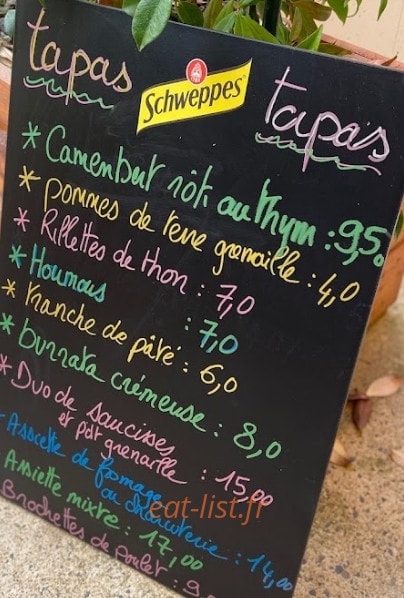 tapas
Schweppes
tapas
* Camembert rôti au thym : 9,50
* pommes de terre grenaille : 4,0
* Rillettes de thon : 7,0
* Houmous : 7,0
* Tranche de pâté : 6,0
* burrata crémeuse : 8,0
* Duo de saucisses
et pdt grenaille : 15,00
Assiette de fromage
ou charcuterie : 14,00
Assiette mixte : 17,00
Brochettes de poulet : 9
eat-list.fr